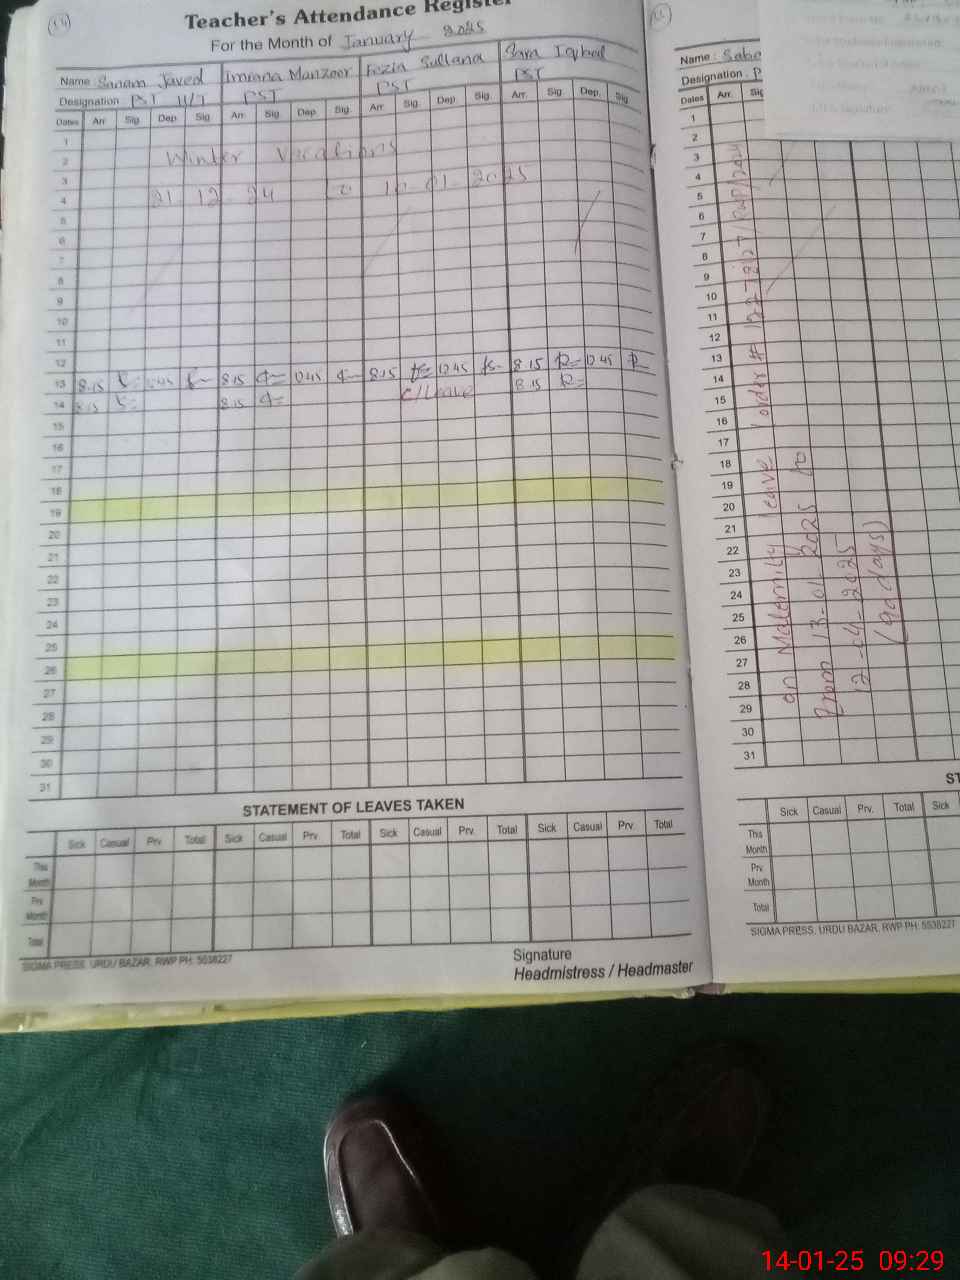 Teacher's Attendance Register
For the Month of January 2025
Name : Sanam Javed Imrana Manzoor Fozia Sultana Sara Iqbal
Designation PST H/T PST PST PST
Dates Arr. Sig. Dep. Sig. Arr. Sig. Dep. Sig. Arr. Sig. Dep. Sig. Arr. Sig. Dep. Sig.
1
2 Winter Vacations
3
4 21 - 12 - 24 to 10 - 01 - 2025
5
6
7
8
9
10
11
12
13 8.15 12.45 8.15 12.45 8.15 12.45 8.15 12.45
14 8.15 8.15 C/Leave 8.15
15
16
17
18
19
20
21
22
23
24
25
26
27
28
29
30
31
STATEMENT OF LEAVES TAKEN
Sick Casual Prv. Total Sick Casual Prv. Total Sick Casual Prv. Total Sick Casual Prv. Total
This Month
Prv. Month
Total
SIGMA PRESS, URDU BAZAR, RWP PH: 5538227
Signature
Headmistress / Headmaster
Name : Sabe
Designation. P
Dates Arr. Sig
1
2
3
4
5
6
7
8
9
10
11
12
13
14
15
16
17
18
19
20
21
22
23
24
25
26
27
28
29
30
31
on Maternity leave order #
From 13-01-2025 to
12-04-2025
(90 days)
ST
Sick Casual Prv. Total Sick
This Month
Prv. Month
Total
SIGMA PRESS, URDU BAZAR, RWP PH: 5538227
14-01-25 09:29